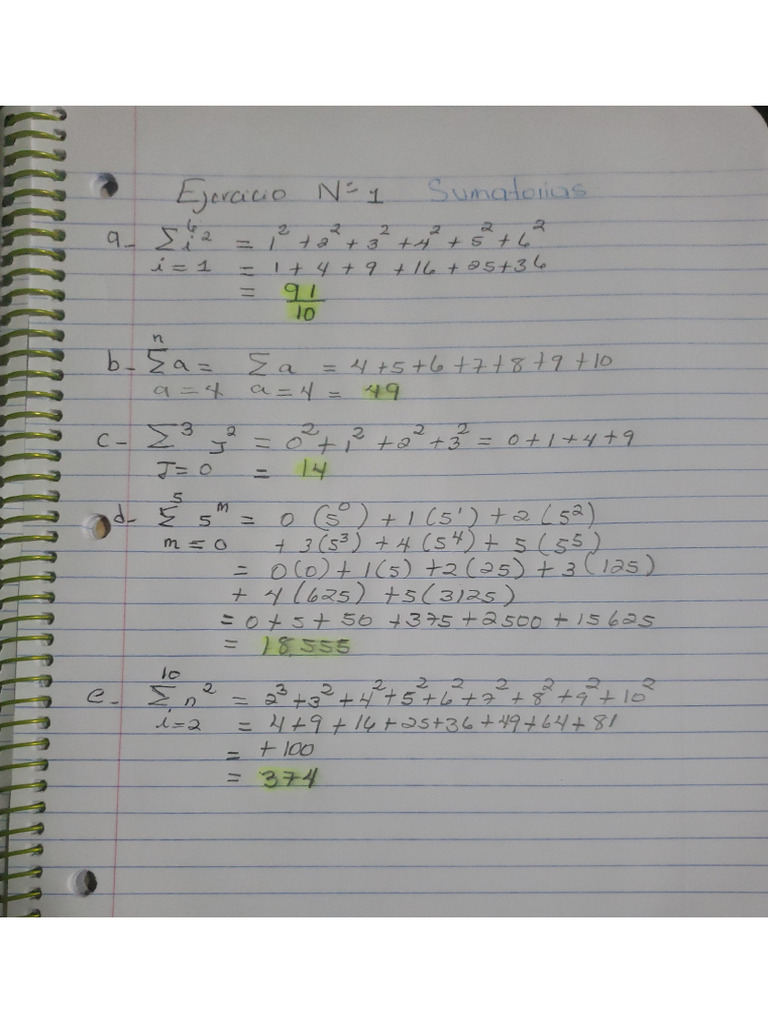 Ejercicio Nº 1 Sumatorias
a- 6
∑ i² = 1² + 2² + 3² + 4² + 5² + 6²
i = 1 = 1 + 4 + 9 + 16 + 25 + 36
= 91
10
n
b- ∑ a = ∑ a = 4 + 5 + 6 + 7 + 8 + 9 + 10
a = 4 a = 4 = 49
c- ∑³ J² = 0² + 1² + 2² + 3² = 0 + 1 + 4 + 9
J = 0 = 14
5
d- ∑ 5ᵐ = 0 (5⁰) + 1 (5¹) + 2 (5²)
m = 0 + 3 (5³) + 4 (5⁴) + 5 (5⁵)
= 0(0) + 1(5) + 2(25) + 3(125)
+ 4(625) + 5(3125)
= 0 + 5 + 50 + 375 + 2500 + 15625
= 18,555
10
e- ∑ n² = 2³ + 3² + 4² + 5² + 6² + 7² + 8² + 9² + 10²
i = 2 = 4 + 9 + 16 + 25 + 36 + 49 + 64 + 81
= + 100
= 374